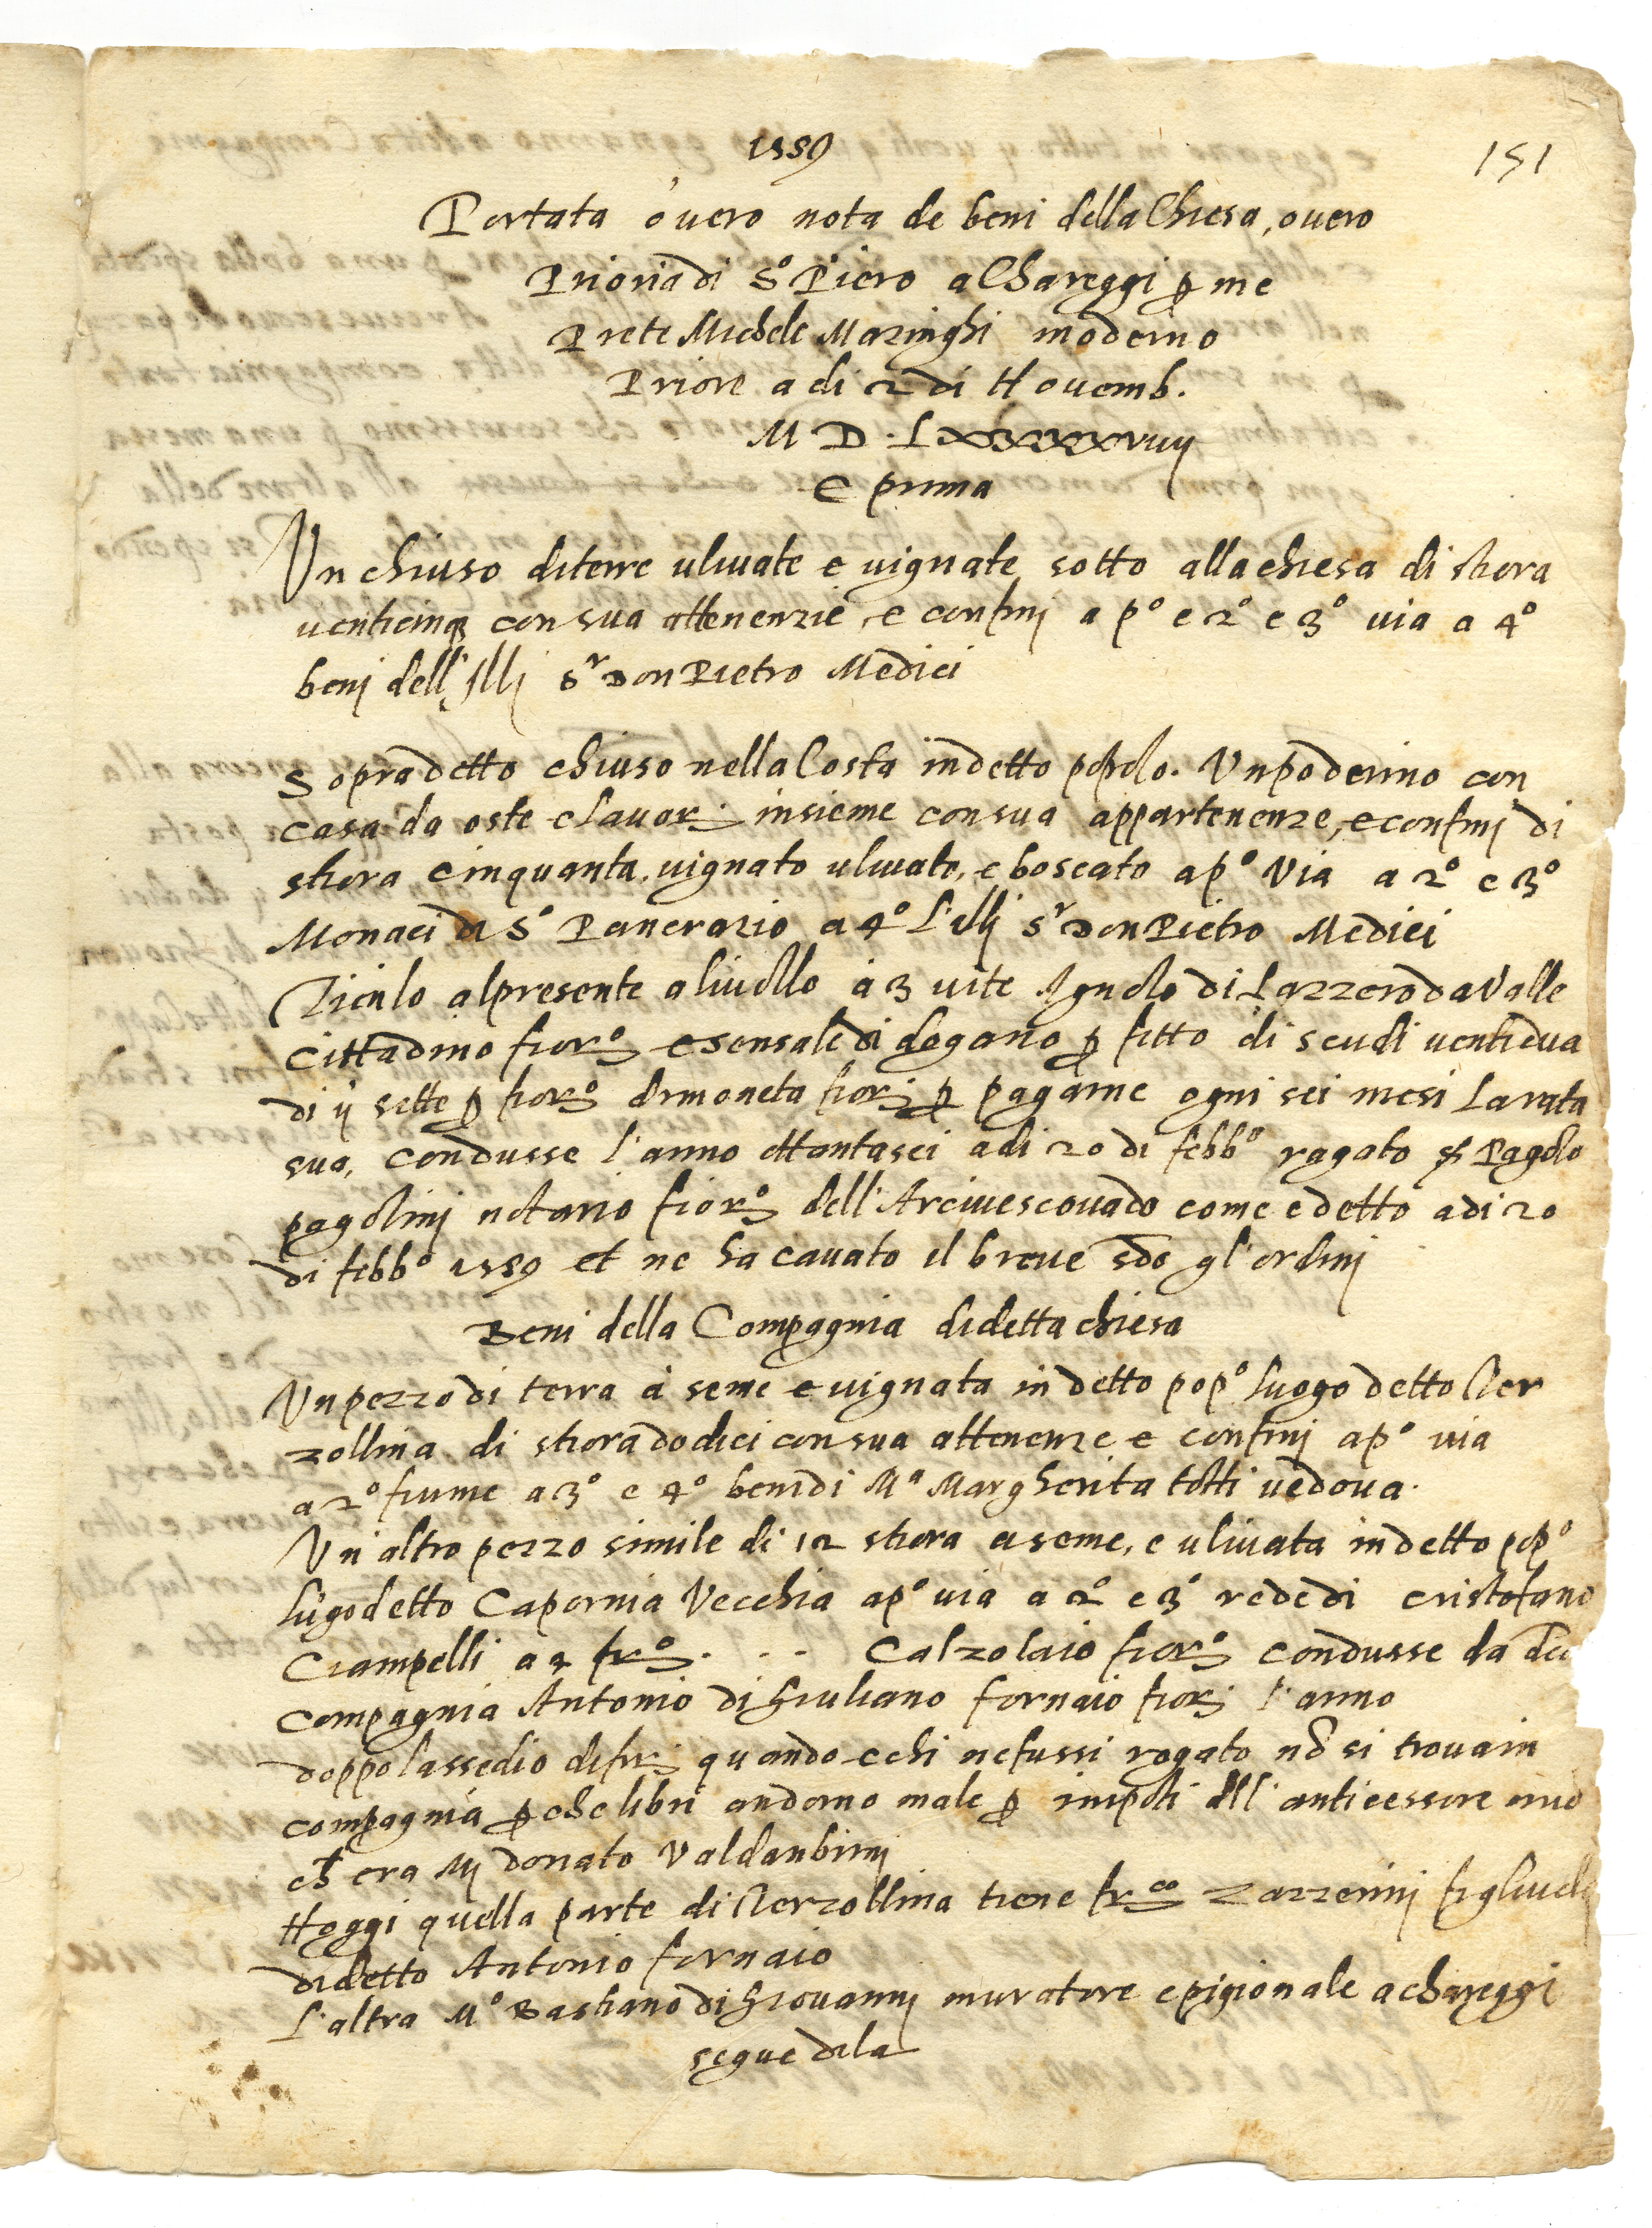 1589
151
Portata o vero nota de beni della Chiesa, overo
Prioria di Sº Piero a Chareggi p me
Prete Michele Mazinghi moderno
Priore a di 2 di Novemb.
M D. LXXXVIIIJ
E prima
Un chiuso di terre ulivate e vignate sotto alla chiesa di stiora
venticinq con sua attenenzie, e confinj a pº e 2º e 3º via a 4º
benj dell' Illj Sr Don Pietro Medici
Sopradetto chiuso nella Costa in detto popolo. Un poderino con
casa da oste e lavor; insieme con sua appartenenze, e confinj di
stiora cinquanta. vignato ulivato, e boscato a pº via a 2º e 3º
Monaci di Sº Pancrazio a 4º l'Illj Sr Don Pietro Medici
Tienlo al presente a livello a 3 vite Agnolo di Lazzero da Valle
cittadino fiorº e sensale di dogana p fitto di scudi ventidua
di ij sette p fiorº di moneta fior; p pagarne ogni sei mesi la rata
sua, condusse l'anno ottantasei a di 20 di febbº rogato Pagolo
pagolinj notario fiorº dell'Arcivescovado come e detto a di 20
di febbº 1589 et ne ha cavato il breve sdo gl'ordinj
Beni della Compagnia di detta chiesa
Un pezzo di terra à seme e vignata in detto popº luogo detto Ter
zollina di stiora dodici con sua attenenze e confinj a pº via
a 2º fiume a 3º e 4º beni di Mª Margherita totti vedova.
Un altro pezzo simile di 12 stiora a seme, e ulivata in detto popº
lugo detto Capornia Vecchia a pº via a 2º e 3º rede di cristofano
Ciampelli a 4 frº. . . Calzolaio fiorº condusse da
compagnia Antonio di Giuliano fornaio fior; l'anno
doppo l'assedio di fir; quando e chi ne fussi rogato nō si trova in
compagnia p che libri andorno male p dell' anticessore mio
ch era Mj donato Valdanbrinj
Hoggi quella parte di Terzollina tiene frco Zazzerinj figliuol
di detto Antonio fornaio
L'altra Mº Bastiano di Giovannj muratore e pigionale a chareggi
segue di la